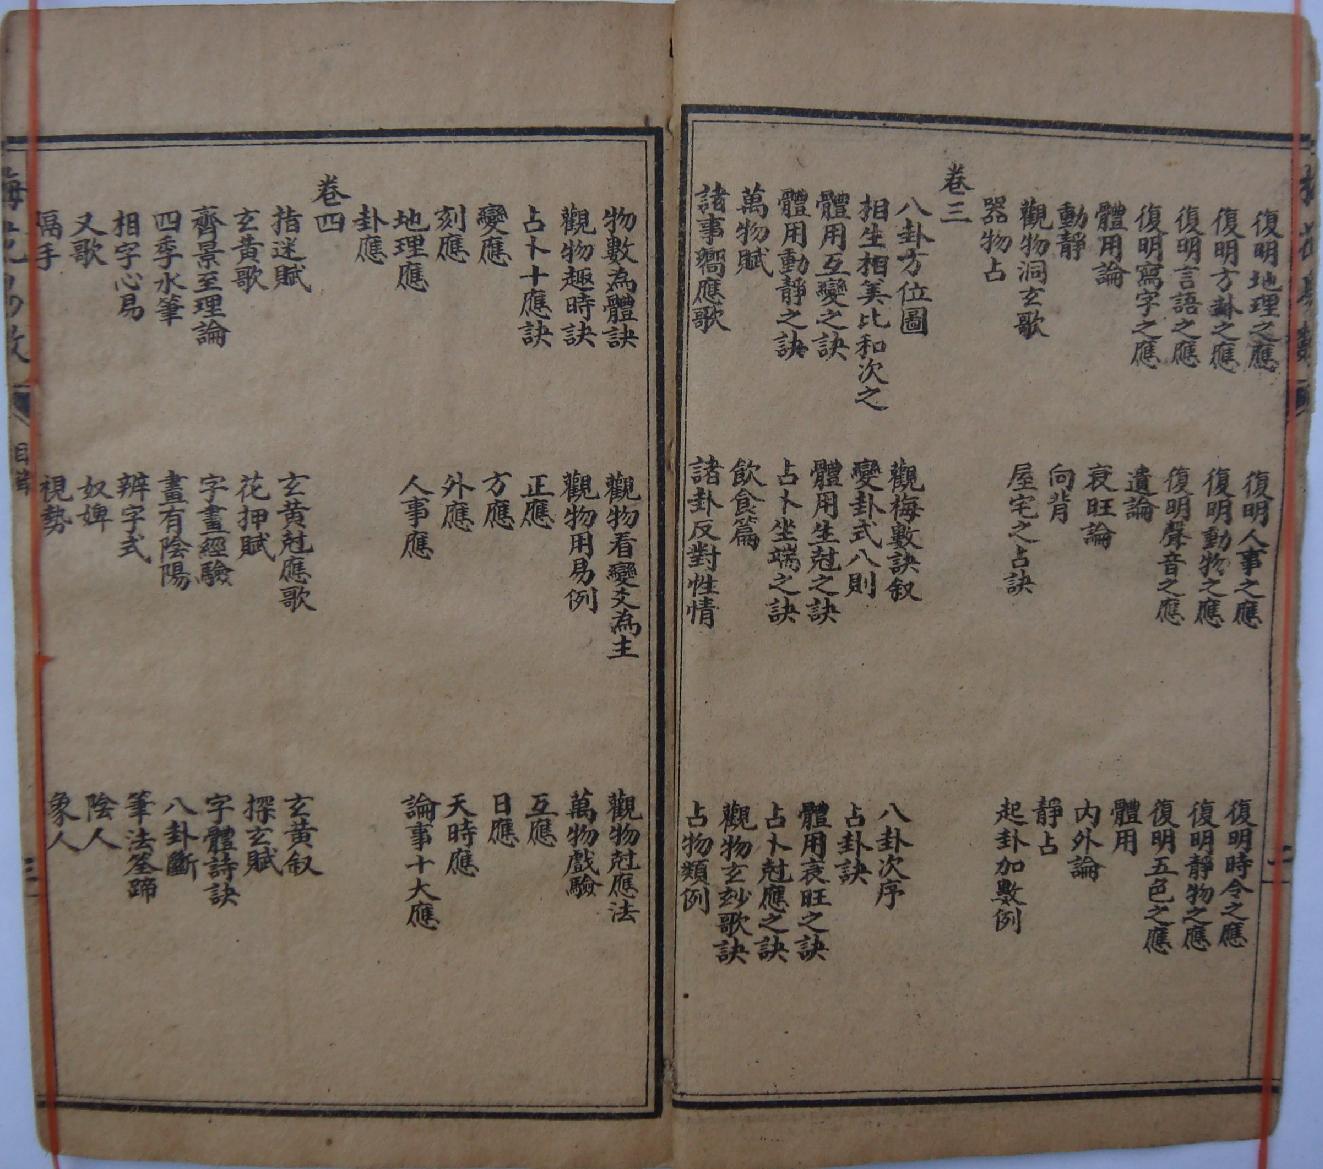 復明地理之應 復明人事之應 復明時令之應
復明方卦之應 復明動物之應 復明靜物之應
復明言語之應 復明聲音之應 復明五色之應
復明寫字之應 遺論 體用
體用論 衰旺論 内外論
動靜 向背 靜占
觀物洞玄歌 屋宅之占訣 起卦加數例
器物占
卷三
八卦方位圖 觀梅數訣叙 八卦次序
相生相美比和次之 變卦式八則 占卦訣
體用互變之訣 體用生尅之訣 體用衰旺之訣
體用動靜之訣 占卜坐端之訣 占卜尅應之訣
萬物賦 飲食篇 觀物玄玅歌訣
諸事嚮應歌 諸卦反對性情 占物類例
物數為體訣 觀物看變爻為主 觀物尅應法
觀物趣時訣 觀物用易例 萬物戲驗
占卜十應訣 正應 互應
變應 方應 日應
刻應 外應 天時應
地理應 人事應 論事十大應
卦應
卷四
指迷賦 玄黄尅應歌 玄黄叙
玄黄歌 花押賦 探玄賦
齊景至理論 字畫經驗 字體詩訣
四季水筆 畫有陰陽 八卦斷
相字心易 辨字式 筆法筌蹄
又歌 奴婢 陰人
隔手 視勢 象人